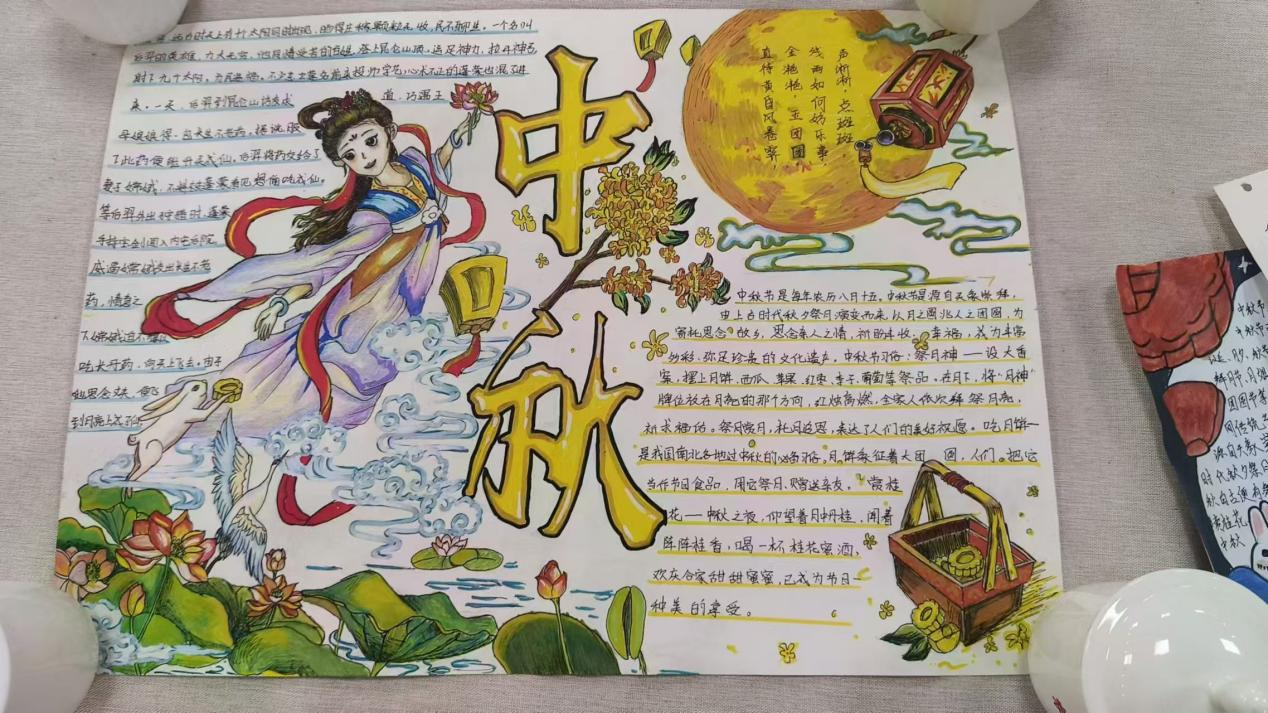 远古时天上有十个太阳同时出现，晒得庄稼颗粒无收，民不聊生。一个名叫
后羿的英雄，力大无穷，他同情受苦的百姓，登上昆仑山顶，运足神力，拉开神弓
射了九个太阳，为民造福。不少志士慕名前来投师学艺，心术不正的蓬蒙也混进
来。一天，后羿到昆仑山访友求
道，巧遇王
母娘娘，得一包长生不老药，据说服
了此药便能升天成仙。后羿将药交给了
妻子嫦娥，不料被蓬蒙看见想偷吃成仙。
等后羿外出狩猎时，蓬蒙
手持宝剑闯入内宅后院
威逼嫦娥交出长生不老
药，情急之
下嫦娥迫不
吃下丹药，向天上飞去。由于
她思念丈夫，便飞
到月亮上成了仙
中秋
声淅淅，点斑斑，
线雨如何妨乐事，
金艳艳，玉团团，
直待黄昏风卷霁，
中秋节是每年农历八月十五。中秋节是源自天象崇拜，
由上古时代秋夕祭月演变而来，以月之圆兆人之团圆，为
寄托思念故乡，思念亲人之情，祈盼丰收、幸福，成为丰富
多彩、弥足珍贵的文化遗产。中秋节习俗：祭月神——设大香
案，摆上月饼、西瓜、苹果、红枣、李子、葡萄等祭品。在月下，将“月神”
牌位放在月亮的那个方向，红烛高燃，全家人依次拜祭月亮，
祈求福佑。祭月赏月，托月追思，表达了人们的美好祝愿。吃月饼—
是我国南北各地过中秋的必备习俗，月饼象征着大团圆，人们把它
当作节日食品，用它祭月，赠送亲友。赏桂
花——中秋之夜，仰望着月中丹桂，闻着
阵阵桂香，喝一杯桂花蜜酒，
欢庆合家甜甜蜜蜜，已成为节日一
种美的享受。
中秋节